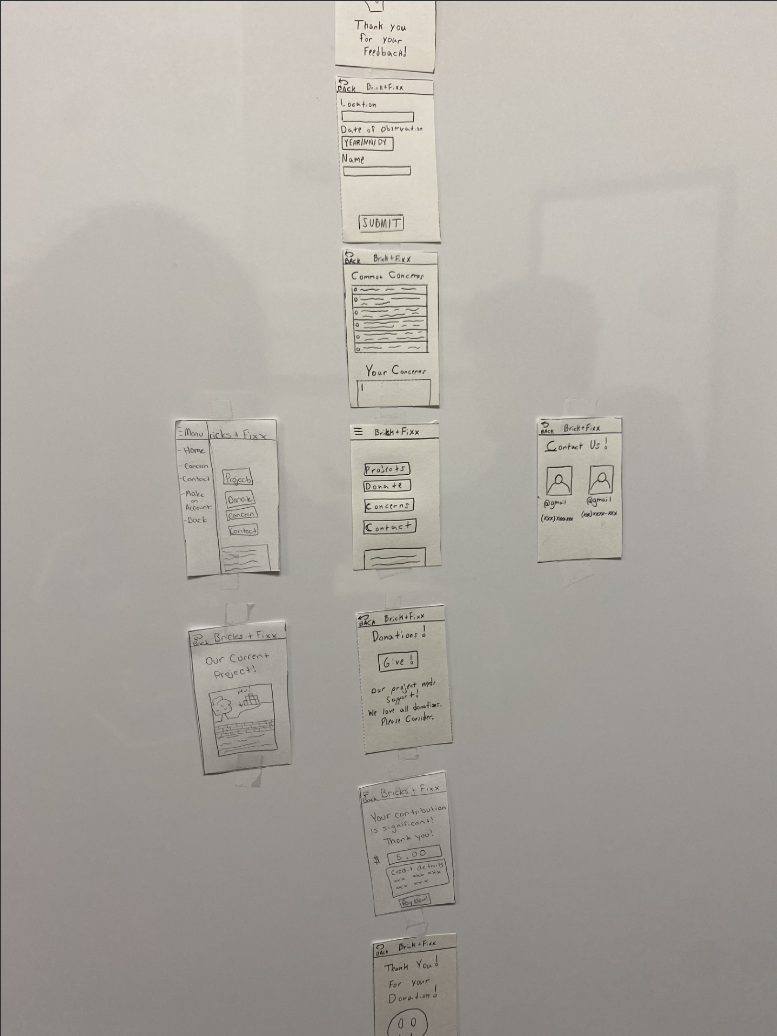 Thank you
for your
Feedback!
BACK Brick+Fixx
Location
Date of Observation
Name
SUBMIT
BACK Brick+Fixx
Common Concerns
Your Concerns
Menu ricks + Fixx
- Home
- Concern
- Contact
- Make
an
Account
- Back
Project
Donate
Concern
Contact
Brick+Fixx
Projects
Donate
Concerns
Contact
BACK Brick+Fixx
Contact Us!
@gmail @gmail
(xxx)xxx-xxx (xx)xxx-xxx
Back Bricks + Fixx
Our Current
Project!
BACK Brick+Fixx
Donations!
Give!
Our project needs
Support!
We love all donations.
Please Consider.
Back Bricks + Fixx
Your contribution
is significant!
Thank you!
$ 5.00
Credit details
xxx xxx xxx
xxx xxx
Pay Now!
BACK Brick+Fixx
Thank You!
For your
Donation!